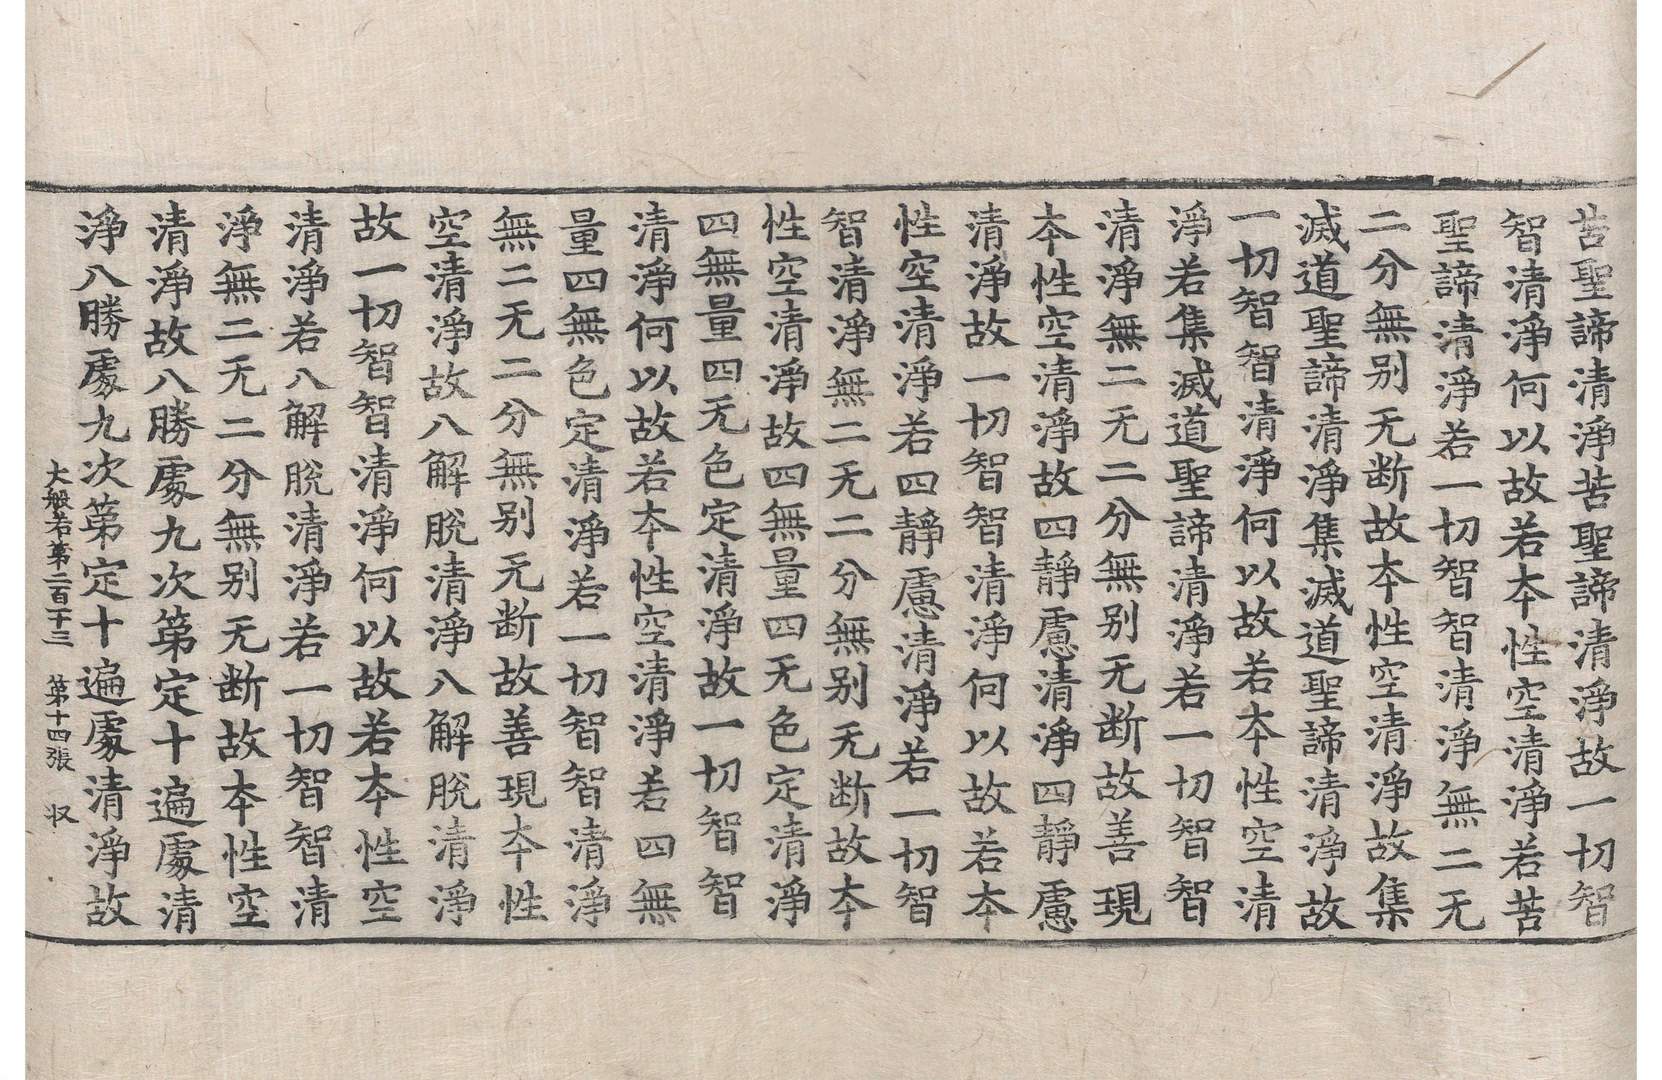 苦聖諦清淨苦聖諦清淨故一切智
智清淨何以故若本性空清淨若苦
聖諦清淨若一切智智清淨無二无
二分無别无断故本性空清淨故集
滅道聖諦清淨集滅道聖諦清淨故
一切智智清淨何以故若本性空清
淨若集滅道聖諦清淨若一切智智
清淨無二无二分無别无断故善現
本性空清淨故四靜慮清淨四靜慮
清淨故一切智智清淨何以故若本
性空清淨若四靜慮清淨若一切智
智清淨無二无二分無别无断故本
性空清淨故四無量四无色定清淨
四無量四无色定清淨故一切智智
清淨何以故若本性空清淨若四無
量四無色定清淨若一切智智清淨
無二无二分無别无断故善現本性
空清淨故八解脫清淨八解脫清淨
故一切智智清淨何以故若本性空
清淨若八解脫清淨若一切智智清
淨無二无二分無别无断故本性空
清淨故八勝處九次第定十遍處清
淨八勝處九次第定十遍處清淨故
大般若第二百十三　第十四張　収